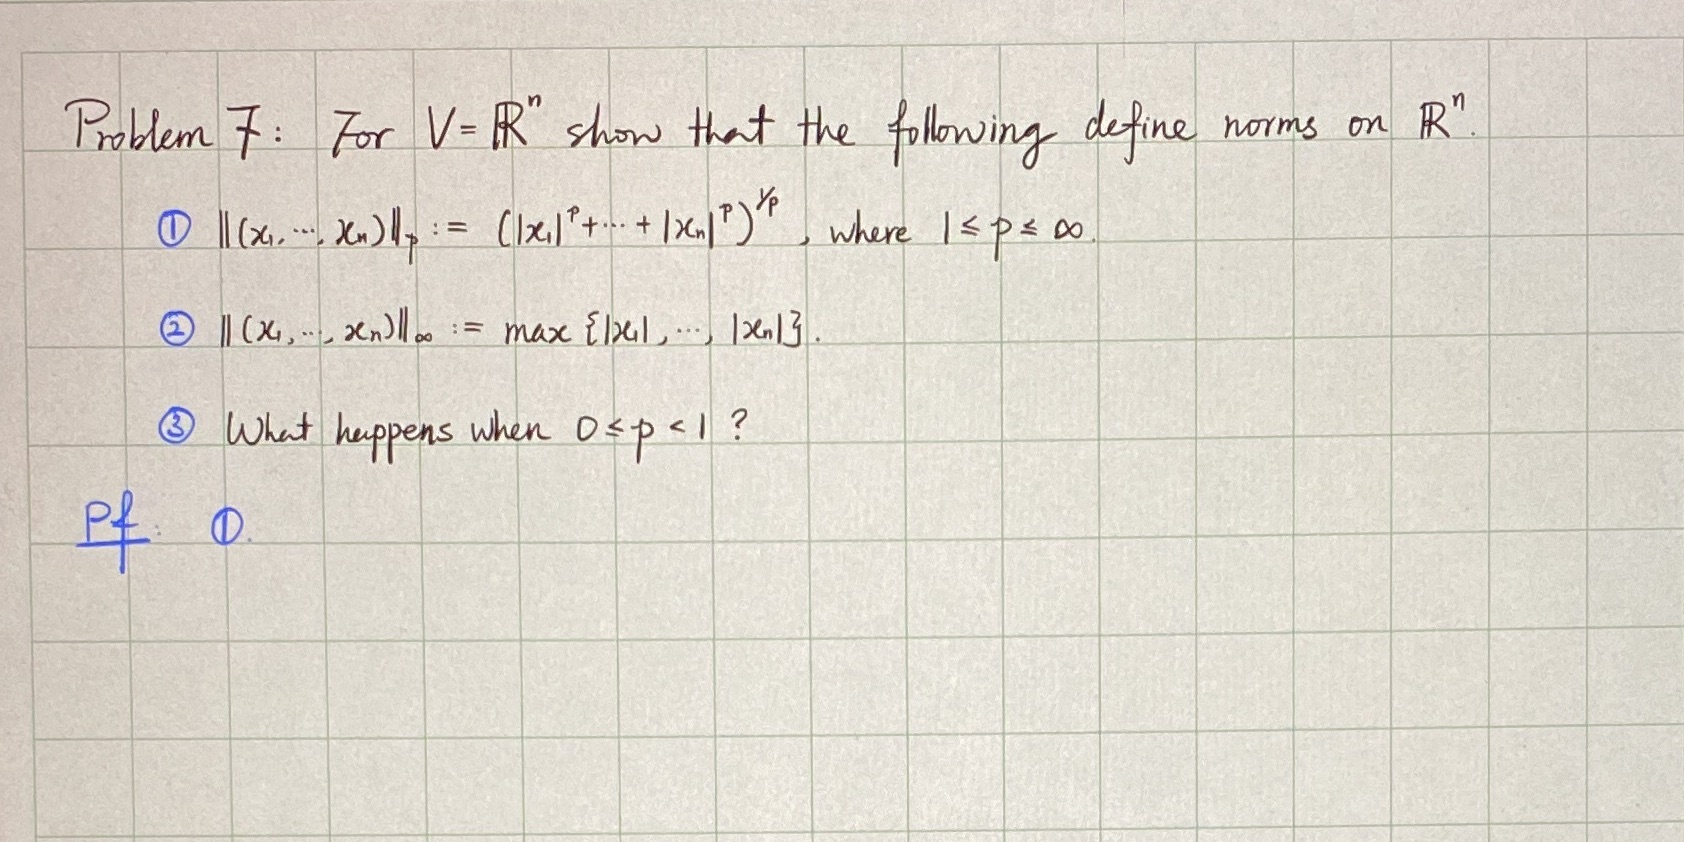 Problem 7: For V = ℝⁿ show that the following define norms on ℝⁿ.
① ‖(x₁, ..., xₙ)‖ₚ := (|x₁|ᵖ + ... + |xₙ|ᵖ)^{1/p}, where 1 ≤ p ≤ ∞.
② ‖(x₁, ..., xₙ)‖∞ := max {|x₁|, ..., |xₙ|}.
③ What happens when 0 ≤ p < 1 ?
Pf: ①.